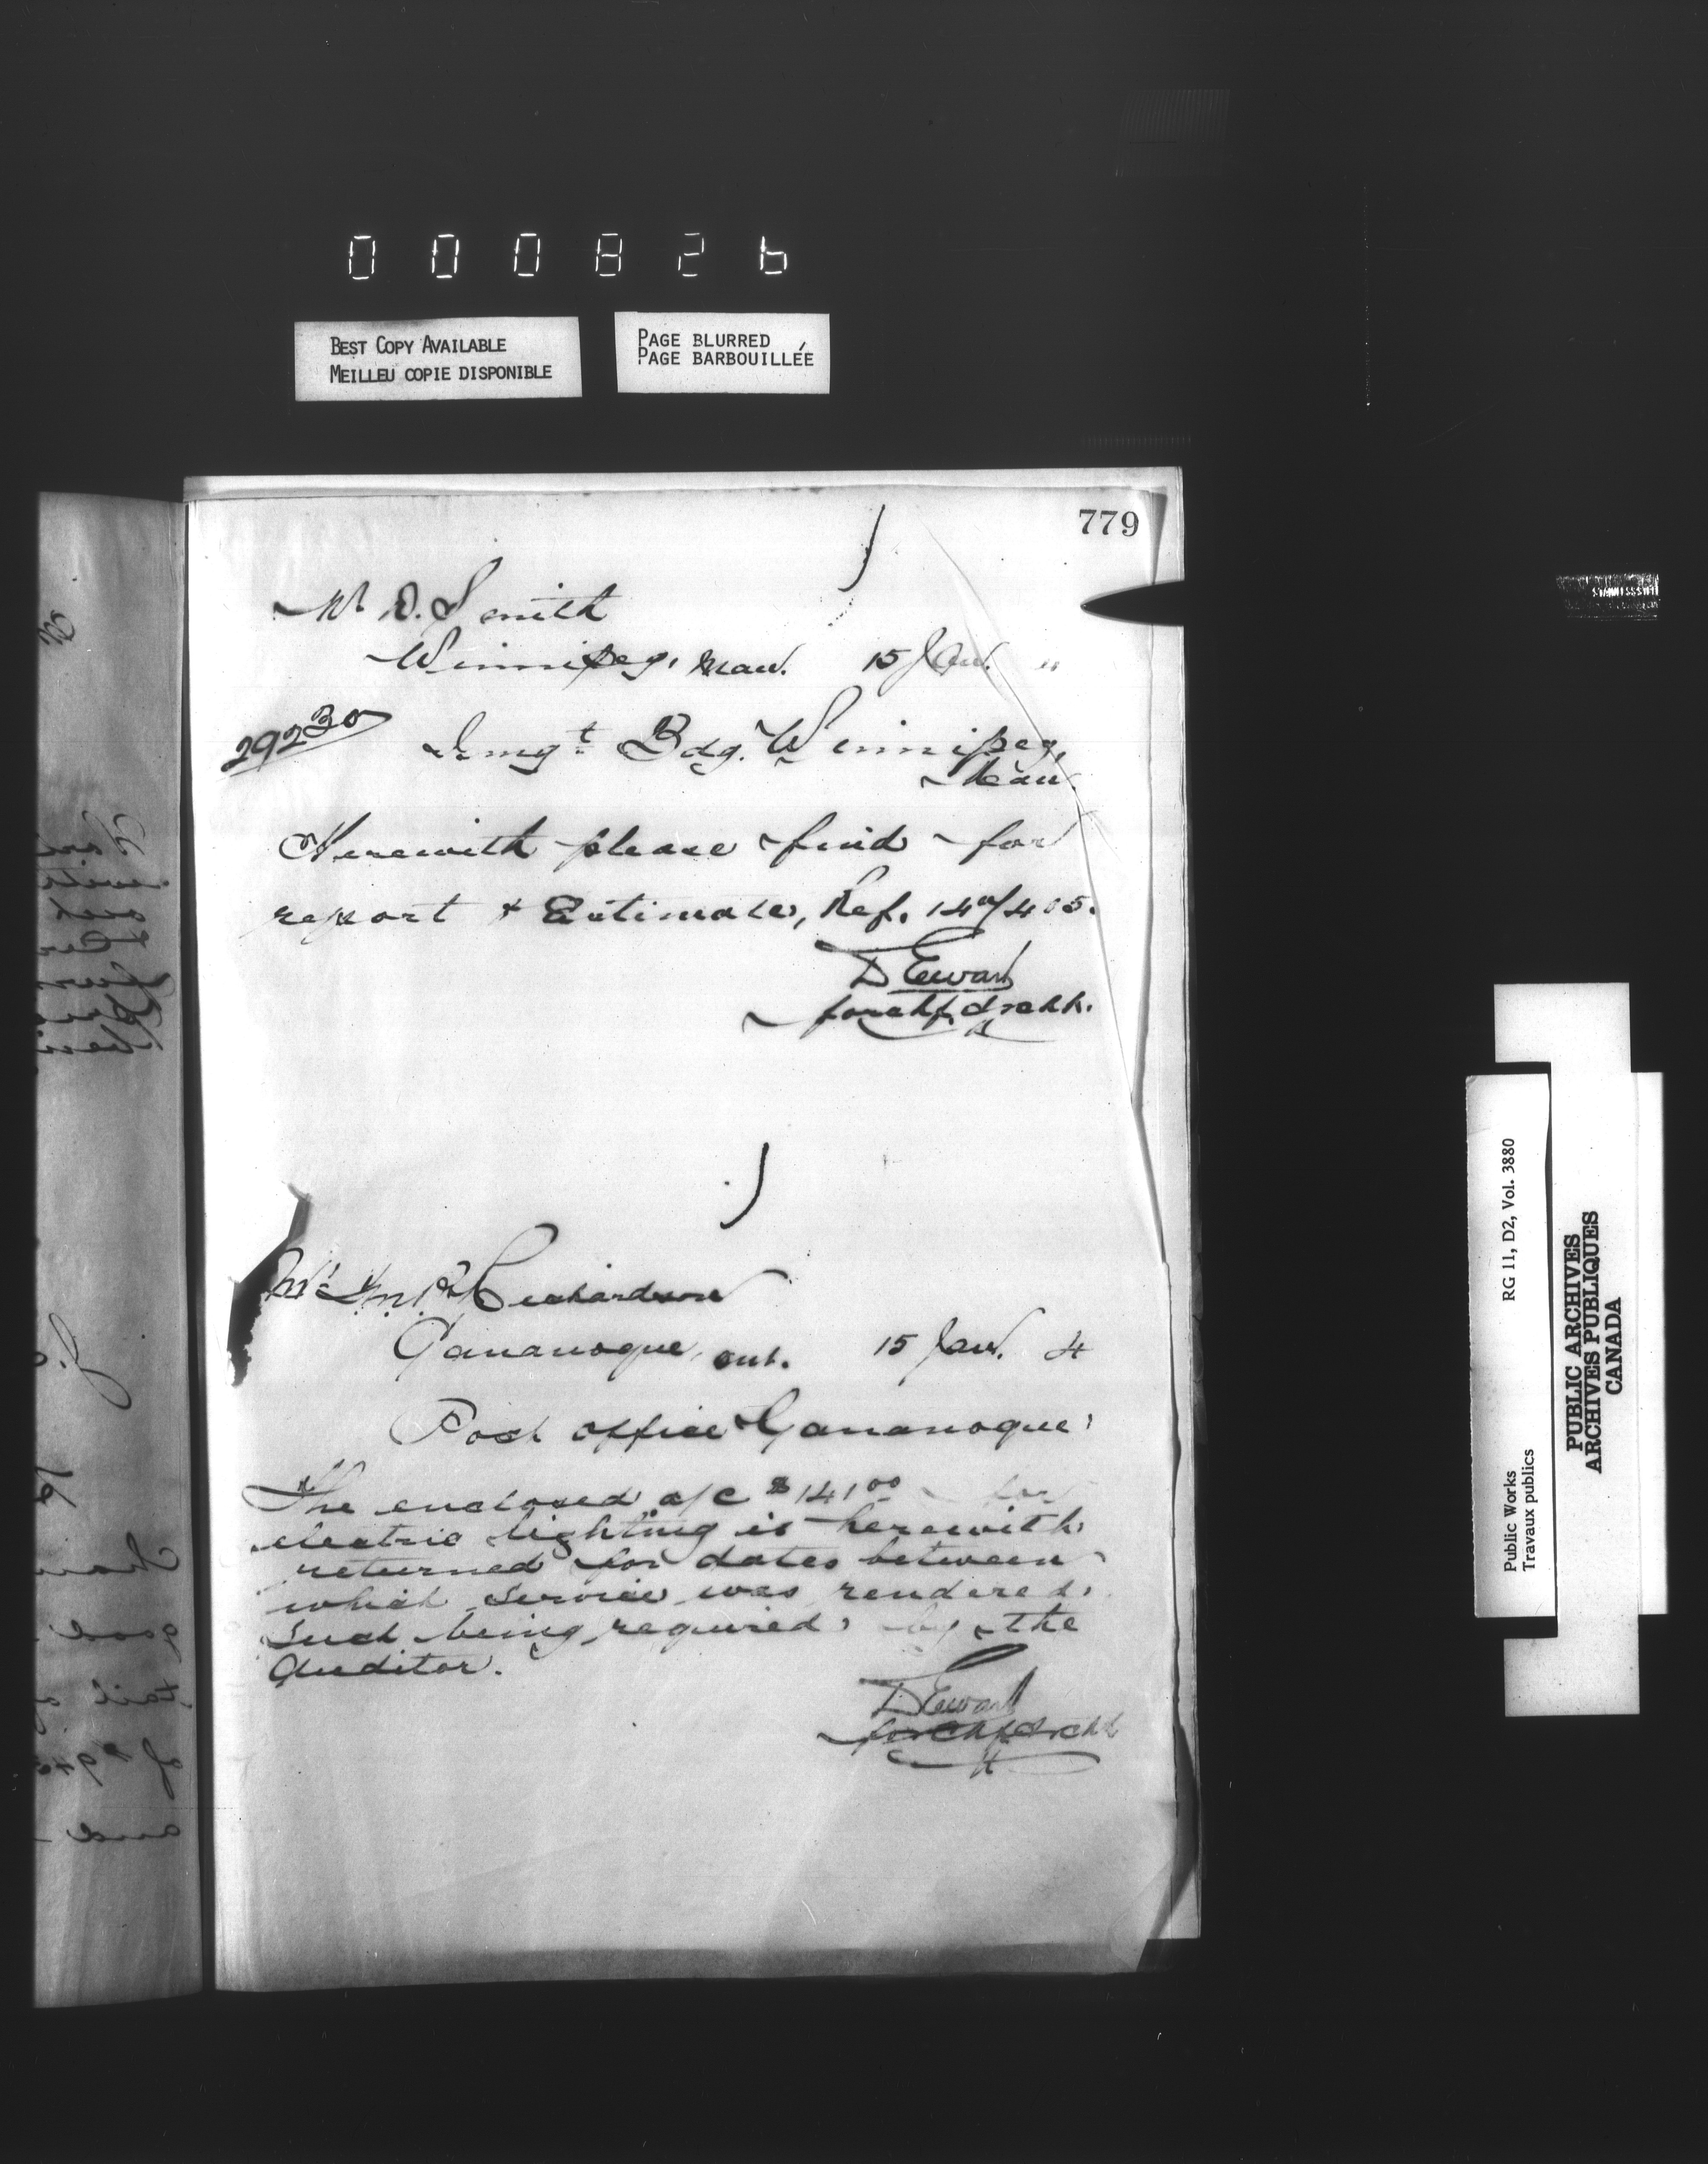 000826
BEST COPY AVAILABLE
MEILLEU COPIE DISPONIBLE
PAGE BLURRED
PAGE BARBOUILLÉE
779
Mr D. Smith
Winnipeg, Man. 15 Jan. "
29230
Immgt Bdg. Winnipeg,
Man.
Herewith please find for
report & Estimate, Ref. 405.
D Ewart
for chf. Archt.
Mr Richardson
Gananoque, Ont. 15 Jan. 4
Post office Gananoque,
The enclosed a/c $141.00 for
electric lighting is herewith
returned for dates between
which service was rendered,
Such being required by the
Auditor.
D Ewart
for chf. Archt
RG 11, D2, Vol. 3880
Public Works
Travaux publics
PUBLIC ARCHIVES
ARCHIVES PUBLIQUES
CANADA